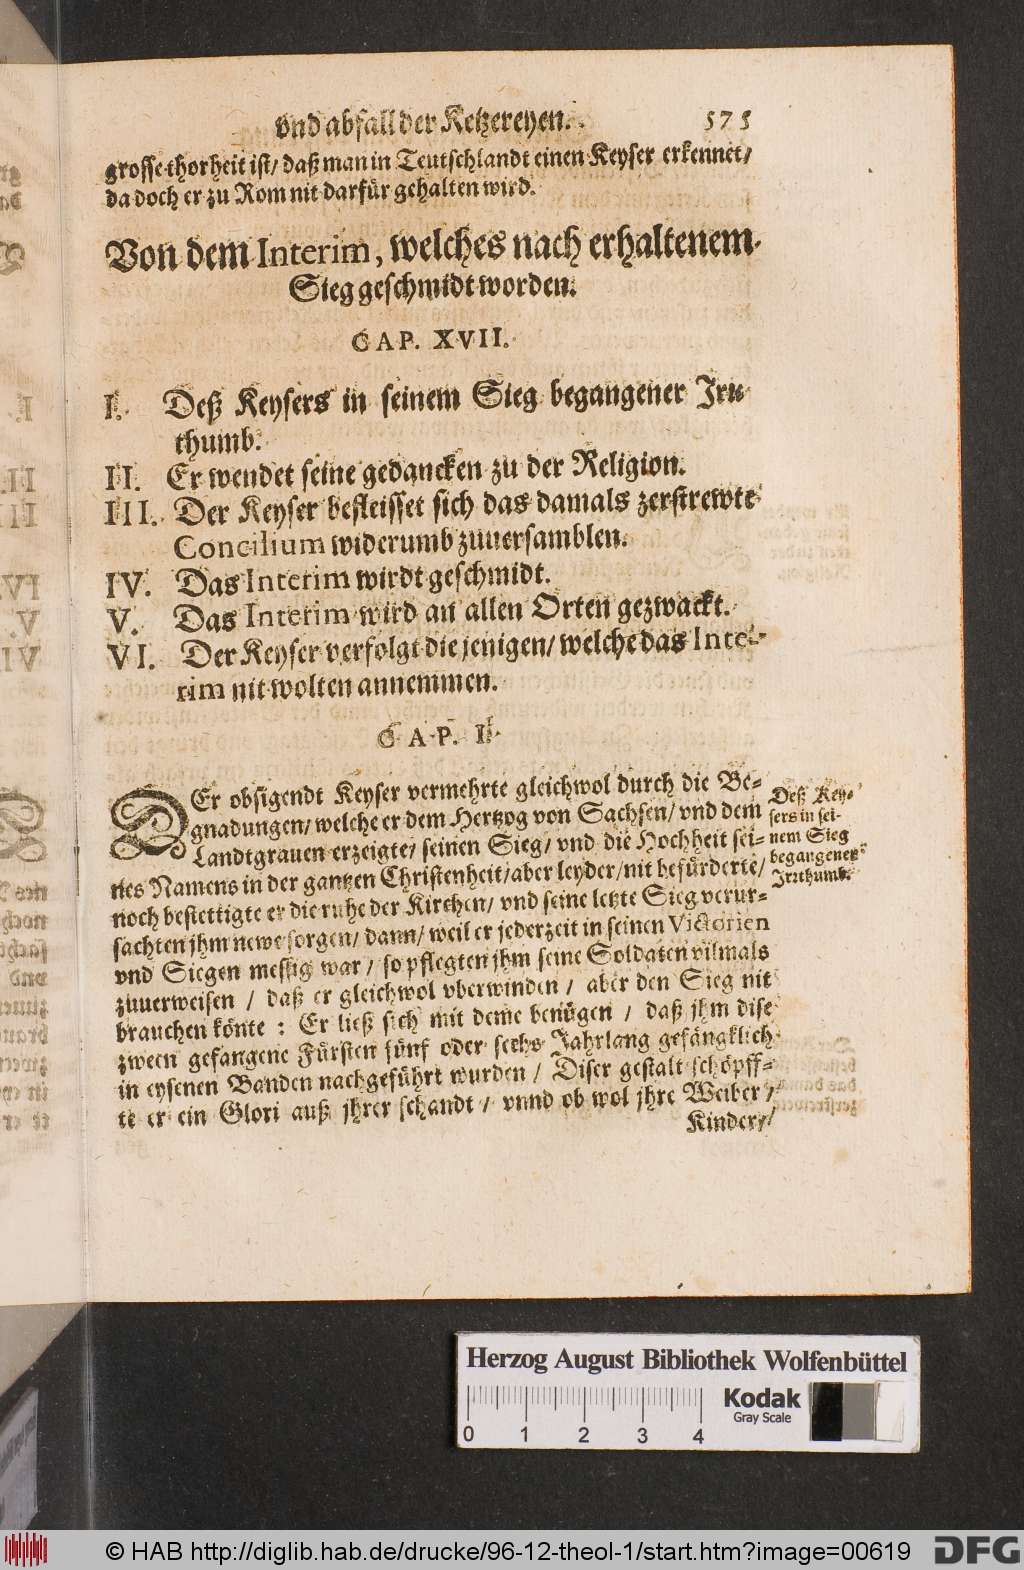 vnd abfall der Ketzereyen. 575
grosse thorheit ist/ daß man in Teutschlandt einen Keyser erkennet/
da doch er zu Rom nit darfür gehalten wird.
Von dem Interim, welches nach erhaltenem
Sieg geschmidt worden.
CAP. XVII.
I. Deß Keysers in seinem Sieg begangener Irr-
thumb.
II. Er wendet seine gedancken zu der Religion.
III. Der Keyser befleisset sich das damals zerstrewte
Concilium widerumb zuuersamblen.
IV. Das Interim wirdt geschmidt.
V. Das Interim wird an allen Orten gezwackt.
VI. Der Keyser verfolgt die jenigen/ welche das Inte-
rim nit wolten annemmen.
CAP. I.
DEr obsigendt Keyser vermehrte gleichwol durch die Be-
gnadungen/ welche er dem Hertzog von Sachsen/ vnd dem
Landtgrauen erzeigte/ seinen Sieg/ vnd die Hochheit sei-
nes Namens in der gantzen Christenheit/ aber leyder/ nit befürderte/
noch bestettigte er die ruhe der Kirchen/ vnd seine letzte Sieg verur-
sachten jhm newe sorgen/ dann/ weil er jederzeit in seinen Victorien
vnd Siegen messig war/ so pflegten jhm seine Soldaten vilmals
zuuerweisen/ daß er gleichwol vberwinden/ aber den Sieg nit
brauchen könte: Er ließ sich mit deme benügen/ daß jhm dise
zween gefangene Fürsten fünf oder sechs Jahrlang gefängklich
in eysenen Banden nachgeführt wurden/ Diser gestalt schöpff-
te er ein Glori auß jhrer schandt/ vnnd ob wol jhre Weiber/
Kinder/
Deß Key-
sers in sei-
nem Sieg
begangener
Irrthumb.
Herzog August Bibliothek Wolfenbüttel
Kodak
Gray Scale
0 1 2 3 4
© HAB http://diglib.hab.de/drucke/96-12-theol-1/start.htm?image=00619
DFG